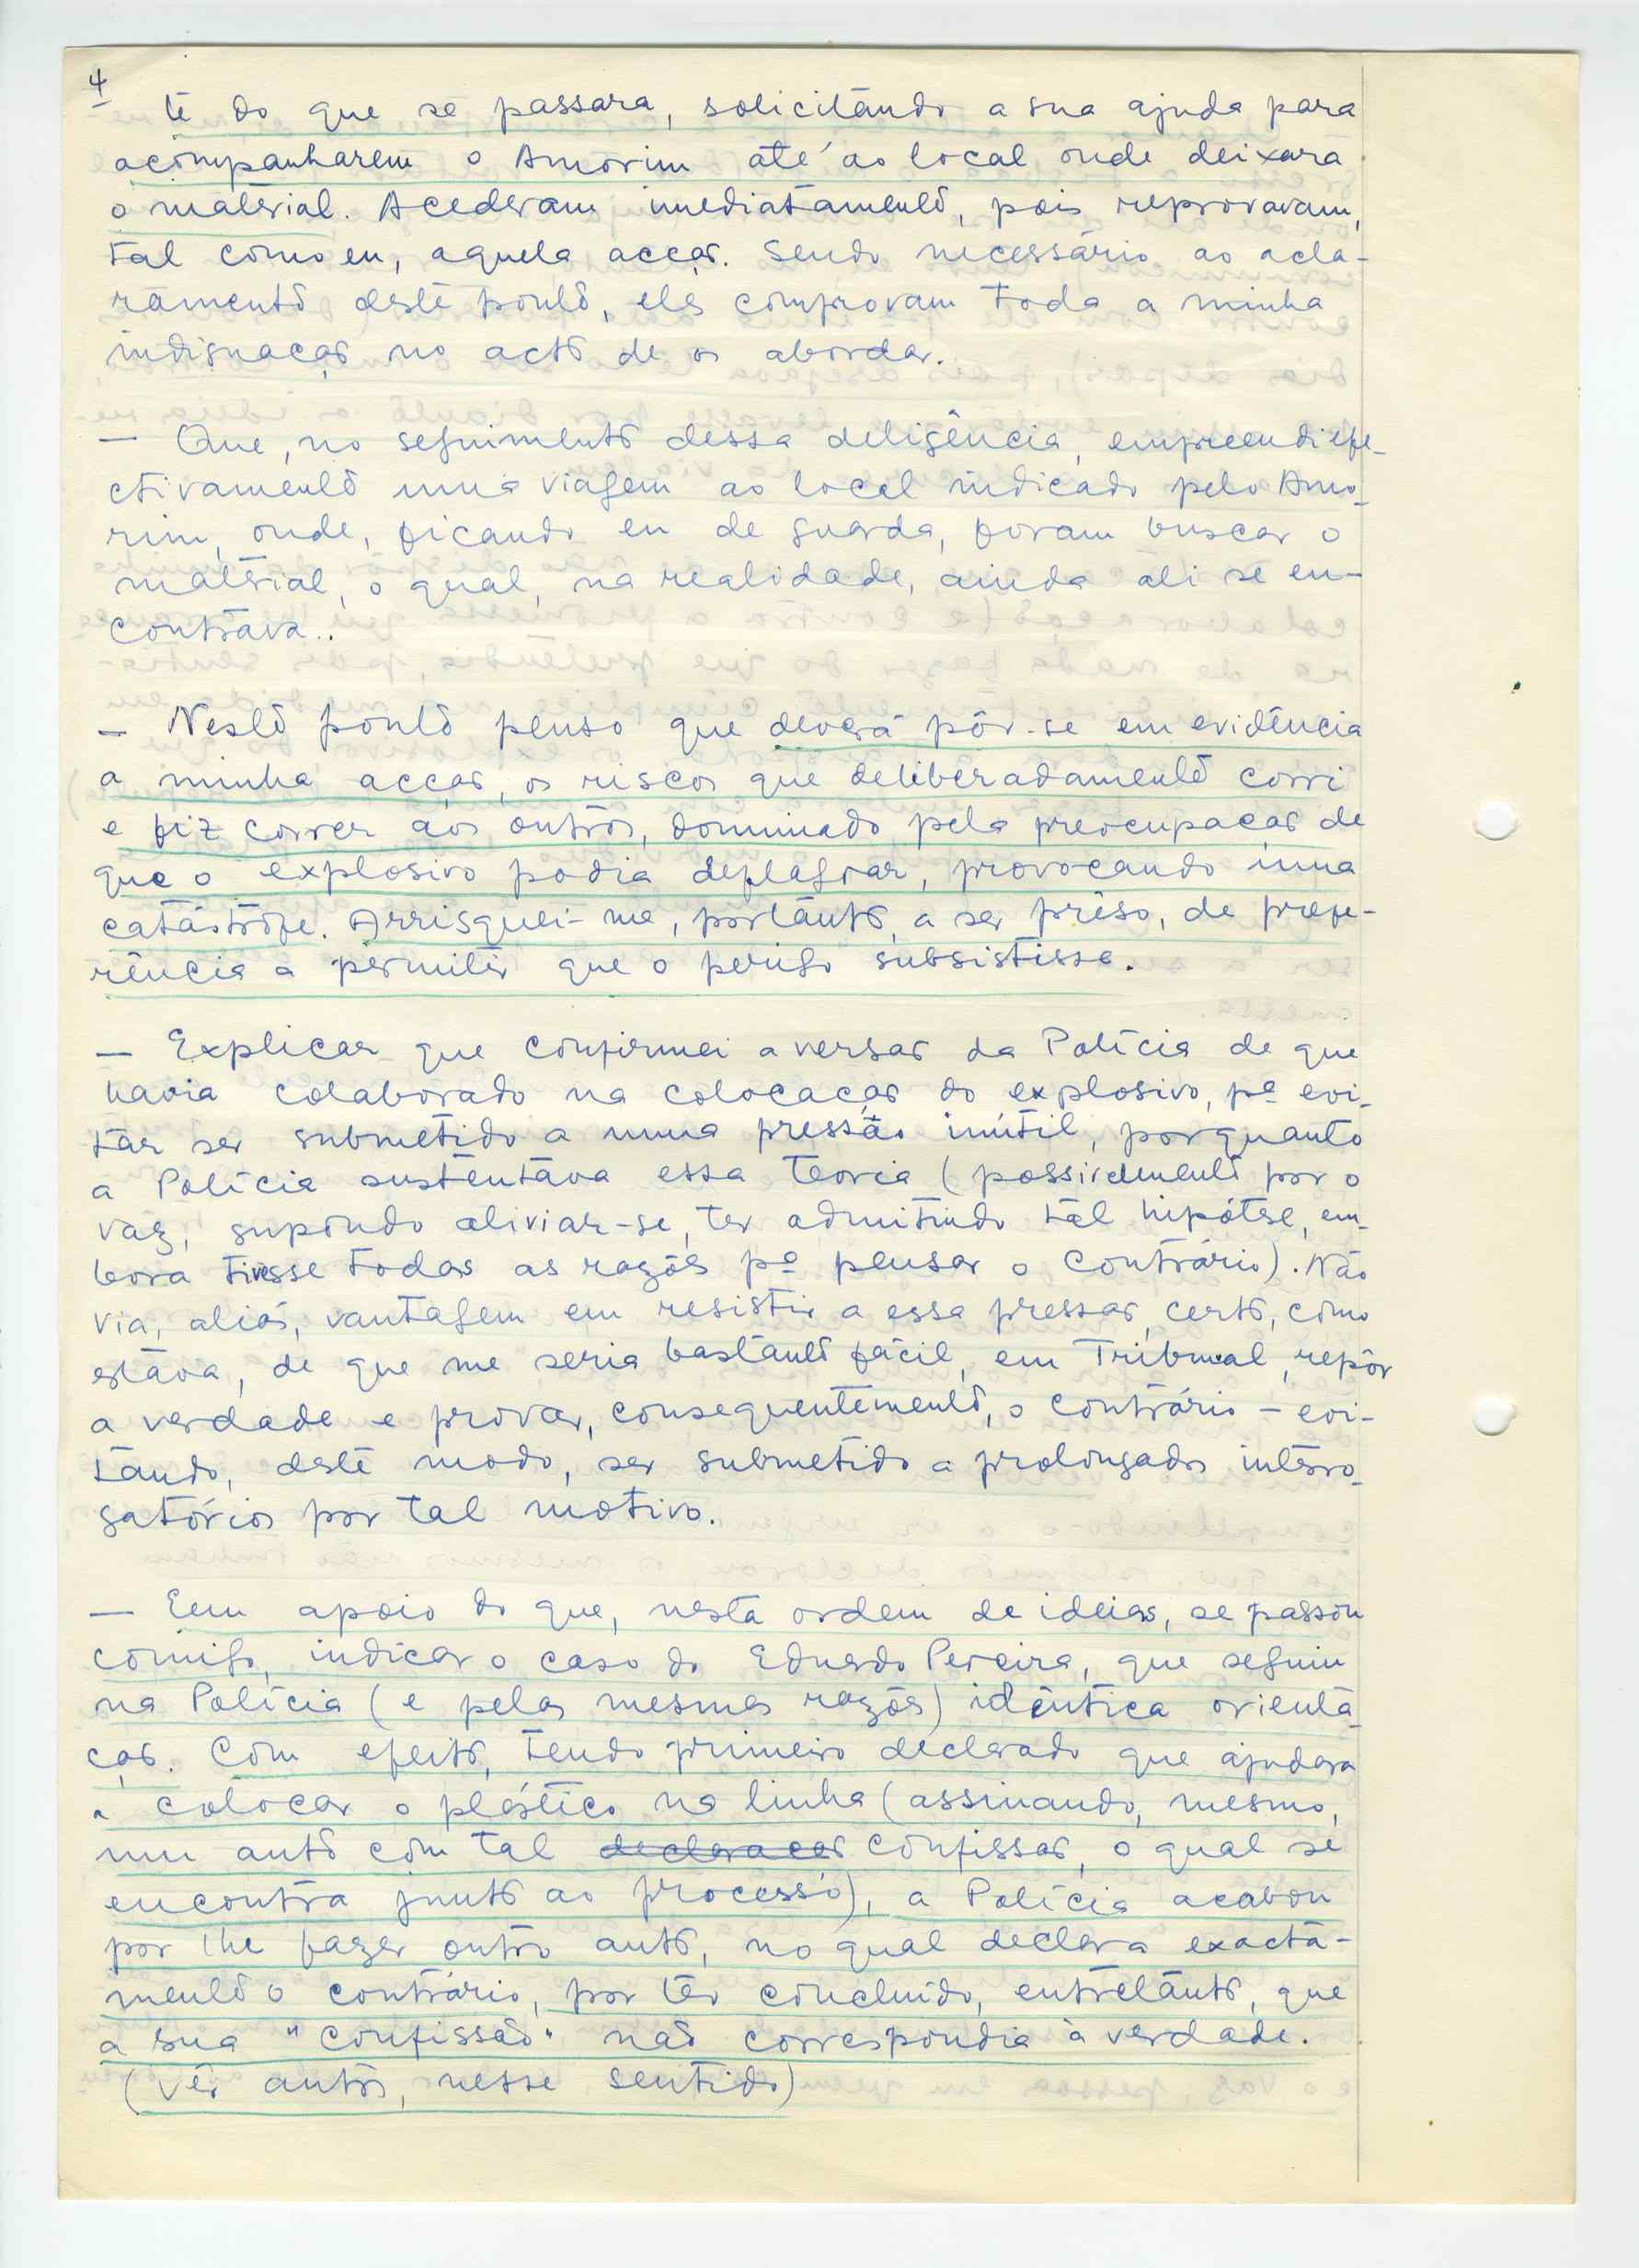 4
te do que se passara, solicitando a sua ajuda para
acompanharem o Amorim até ao local onde deixara
o material. Acederam imediatamente, pois reprovavam,
tal como eu, aquela acção. Sendo necessário ao acla-
ramento deste ponto, eles comprovam toda a minha
indignação no acto de os abordar.
— Que, no seguimento dessa deligência, empreendi efe-
ctivamente uma viagem ao local indicado pelo Amo-
rim, onde, ficando eu de guarda, foram buscar o
material, o qual, na realidade, ainda ali se en-
contrava..
— Neste ponto penso que deverá pôr-se em evidência
a minha acção, os riscos que deliberadamente corri
e fiz correr aos outros, dominado pela preocupação de
que o explosivo podia deflagrar, provocando uma
catástrofe. Arrisquei-me, portanto, a ser prêso, de prefe-
rência a permitir que o perigo subsistisse.
— Explicar que confirmei a versão da Polícia de que
havia colaborado na colocação do explosivo, pª evi-
tar ser submetido a uma pressão inútil, porquanto
a Polícia sustentava essa teoria (possivelmente por o
Vaz, supondo aliviar-se, ter admitindo tal hipótese, em-
bora tivesse todas as razões pª pensar o contrário). Não
via, aliás, vantagem em resistir a essa pressão, certo, como
estava, de que me seria bastante fácil, em Tribunal, repôr
a verdade e provar, consequentemente, o contrário — evi-
tando, deste modo, ser submetido a prolongados interro-
gatórios por tal motivo.
— Eem apoio do que, nesta ordem de ideias, se passou
comigo, indicar o caso do Eduardo Pereira, que seguiu
na Polícia (e pelas mesmas razões) idêntica orienta-
ção. Com efeito, tendo primeiro declarado que ajudara
a colocar o plástico na linha (assinando, mesmo,
um auto com tal declaração confissão, o qual se
encontra junto ao processo), a Polícia acabou
por lhe fazer outro auto, no qual declara exacta-
mente o contrário, por ter concluído, entretanto, que
a sua "confissão" não correspondia à verdade.
(Ver autos, nesse sentido)